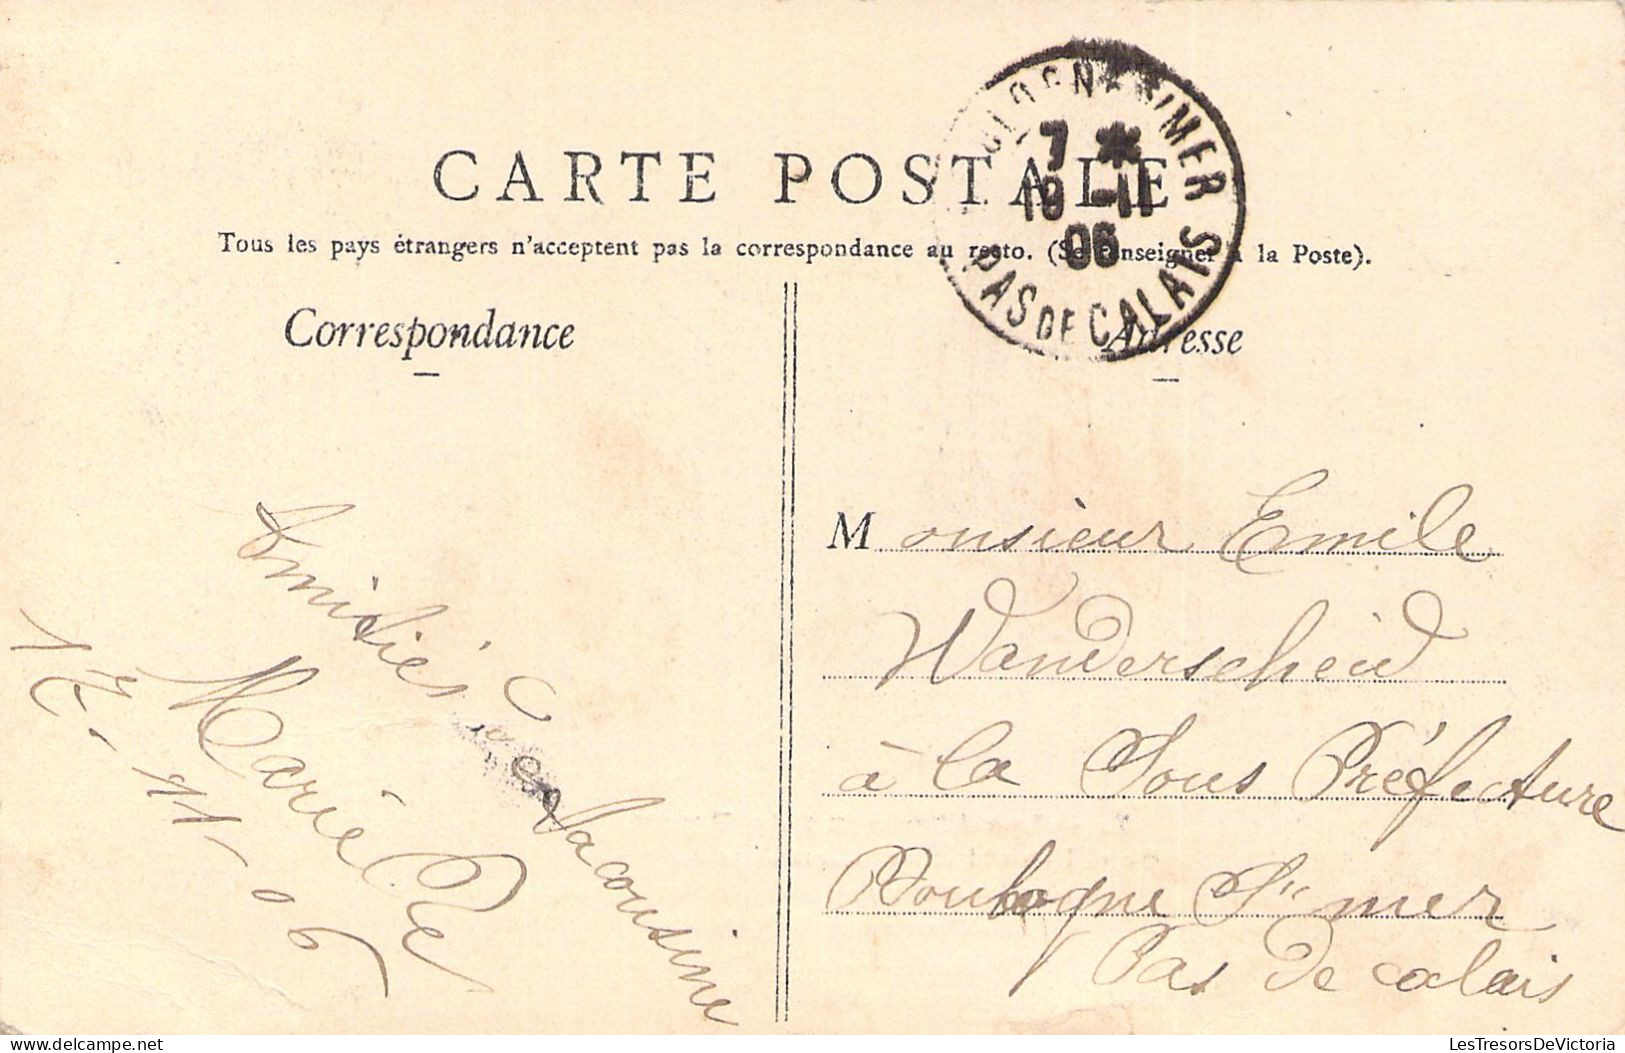 CARTE POSTALE
Tous les pays étrangers n'acceptent pas la correspondance au recto. (Se renseigner à la Poste).
BOULOGNE S/MER
7 *
19 - 11
06
PAS DE CALAIS
Correspondance
Adresse
Amitiés
de ta cousine
Marie
17 - 11 - 06
Monsieur Emile
Wanderscheid
à la Sous Préfecture
Boulogne S/ mer
Pas de calais
LesTresorsDeVictoria